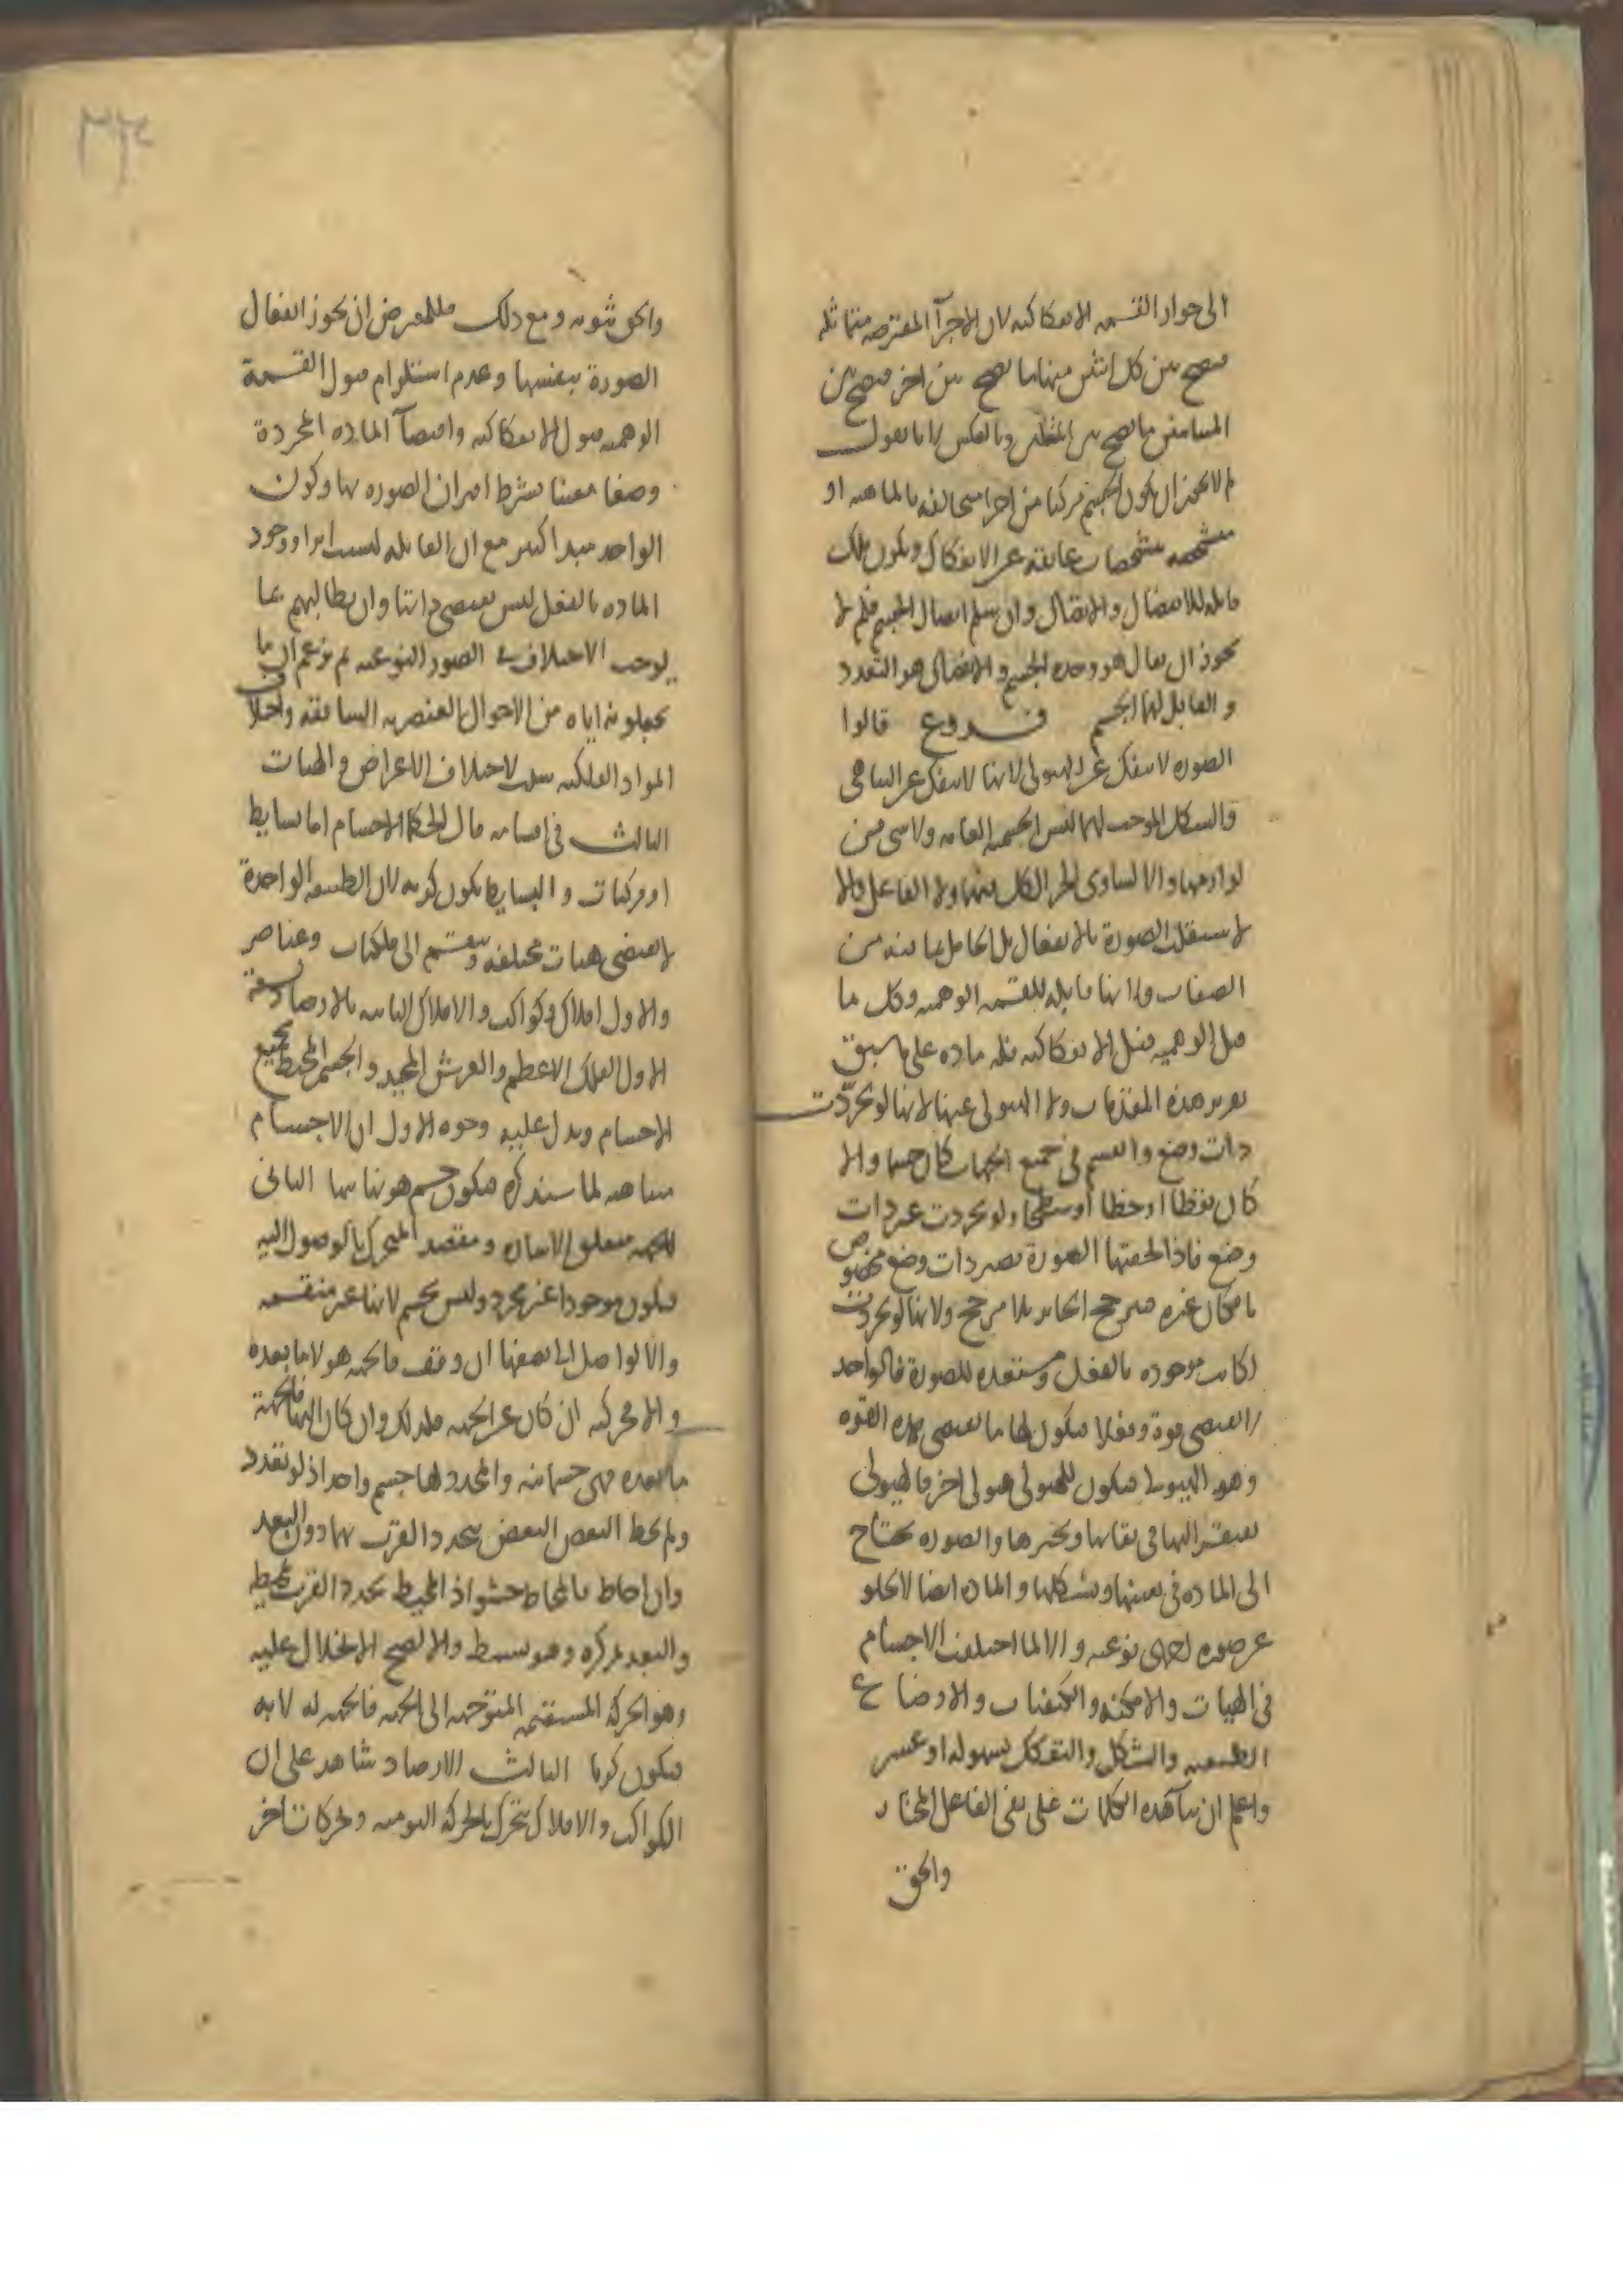 الى جواز القسمه الانفكاكيه لان الاجزآ المفترضه متماثله
فيصح بين كل اثنين منها ما يصح بين اخرين فيصح بين
المتباينين ما يصح بين المتصلين وبالعكس لانا نقول
لم لا يجوز ان يكون الجسم مركبا من اجزا متخالفه بالماهيه او
متشخصه بتشخصات عايقه عن الانفكاك ويكون تلك
قابله للانفصال والاتصال وان سلم اتصال الجسم فلم لا
يجوز ان يقال هو وحده الجسم والانفصال هو التعدد
والقابل لهما الجسم فروع قالوا
الصوره لا تنفك عن الهيولى لانها لا تنفك عن التناهى
والتشكل الموجب لهما ليس الجسميه العامه ولا شى من
لوازمها والا لتساوى الجزء الكل فيهما ولا الفاعل والا
لاستقلت الصورة بالانفعال بل الحامل بما فيه من
الصفات ولانها قابله للقسمه الوهميه وكل ما
قبل الوهميه قبل الانفكاكيه فله ماده على ما سبق
تقرير هذه المقدمات ولا الهيولى عنها لانها لو تجردت
ذات وضع وانقسم فى جميع الجهات كان جسما والا
كان نقطا او خطا او سطحا ولو تجردت غير ذات
وضع فاذا لحقتها الصورة تصير ذات وضع مخصوص
بامكان غيره فيترجح الجايز بلا مرجح ولانها لو تجردت
لكانت موجوده بالفعل ومستعده للصورة فالواحد
لا يقتضى قوة وفعلا فيكون لها ما يقتضى هذه القوه
وهو الهيولى فيكون للهيولى هيولى اخر فالهيولى
تفتقر اليها فى بقائها وتحيزها والصوره تحتاج
الى الماده فى تعينها وتشكلها والماده ايضا لا تخلو
عن صوره اخرى نوعيه والا لما اختلفت الاجسام
فى الهيات والامكنه والكيفيات والاوضاع
الطبيعيه والتشكل والتفكك بسهولة او عسر
واعلم ان بنآ هذه الكلمات على نفى الفاعل المختار
والحق
والحق ثبوته ومع ذلك فللمعترض ان يجوز انفعال
الصورة بنفسها وعدم استلزام قبول القسمة
الوهميه قبول الانفكاكيه واقتضآ الماده المجردة
وضعا معينا بشرط اقتران الصوره بها وكون
الواحد مبدا كثير مع ان القابليه ليست اثرا ووجود
الماده بالفعل ليس بمقتضى ذاتها وان يطالبهم بما
يوجب الاختلاف فى الصور النوعيه ثم يزعم ان ما
يجعلونه اياه من الاحوال العنصريه السابقه واختلاف
المواد الفلكيه سبب لاختلاف الاعراض والهيات
الثالث فى اقسامه قال الحكما الاجسام اما بسايط
او مركبات والبسايط يكون كريه لان الطبيعه الواحدة
لا تقتضى هيات مختلفه وينقسم الى فلكيات وعناصر
والاول افلاك وكواكب والافلاك الثابته بالارصاد تسعة
الاول الفلك الاعظم والعرش المجيد والجسم المحيط بجميع
الاجسام ويدل عليه وجوه الاول ان الاجسام
متناهيه لما سنذكره فيكون جسم هو نهايتها الثانى
الجهه متعلق الاشاره ومقصد المتحرك بالوصول اليه
فيكون موجودا غير مجرد وليس بجسم لانها غير منقسمه
والا لو وصل الى نصفها ان وقف فالجهه هو لا ما بعده
والا فحركته ان كان عن الجهه فكذلك وان كان اليها فالجهة
ما بعده فهى جسمانيه والمحدد لها جسم واحد اذ لو تعدد
ولم يحط البعض البعض يتحدد القرب بهما دون البعد
وان احاط فالمحاط حشو اذ المحيط يحدد القرب بمحيطه
والبعد بمركزه وهو بسيط والا لصح الانحلال عليه
وهو الحركة المستقيمه المتوجهه الى الجهه فالجهه له لا به
فيكون كريا الثالث الارصاد شاهد على ان
الكواكب والافلاك يتحرك بالحركة اليوميه وحركات اخر